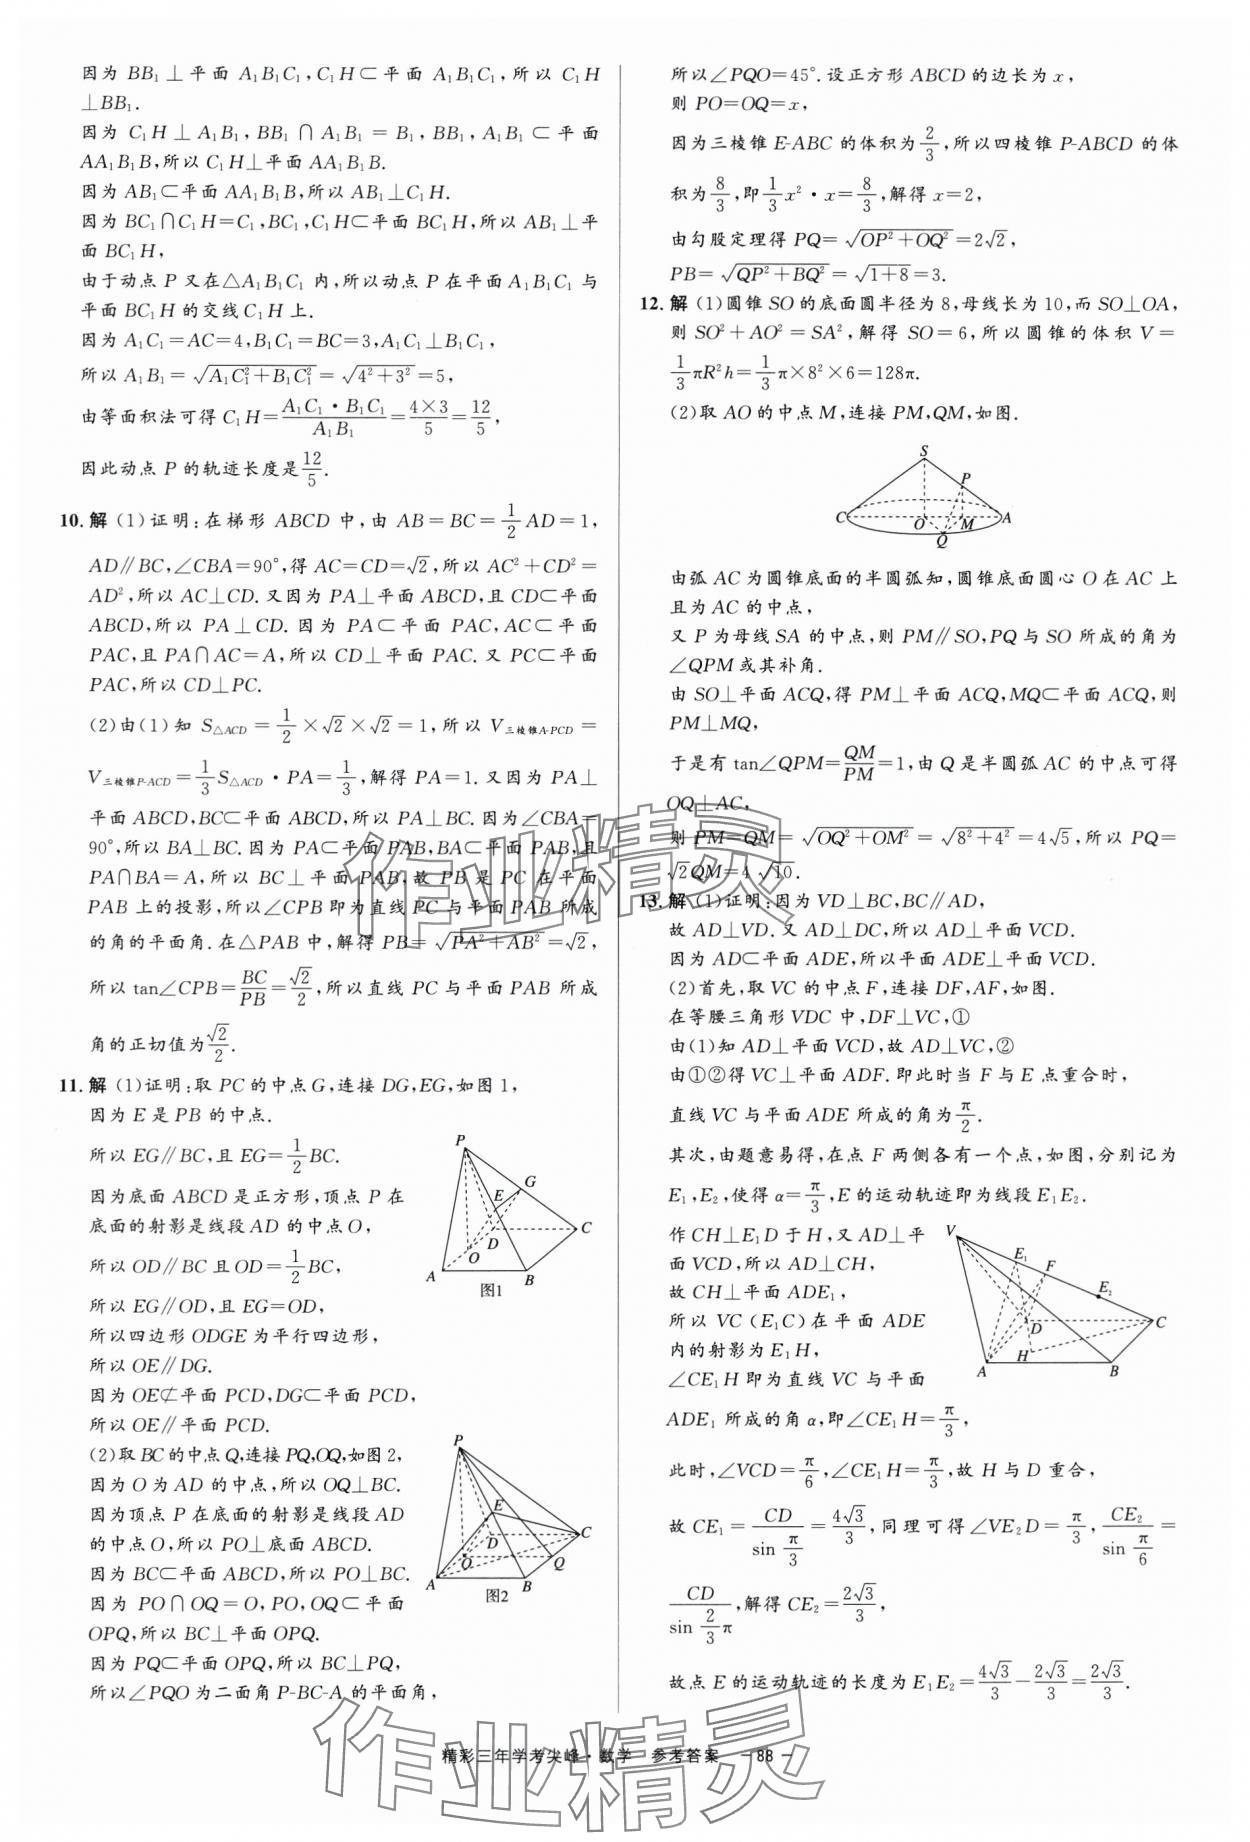 因为 BB₁⊥平面 A₁B₁C₁,C₁H⊂平面 A₁B₁C₁,所以 C₁H
⊥BB₁.
因为 C₁H⊥A₁B₁,BB₁∩A₁B₁=B₁,BB₁,A₁B₁⊂平面
AA₁B₁B,所以 C₁H⊥平面 AA₁B₁B.
因为 AB₁⊂平面 AA₁B₁B,所以 AB₁⊥C₁H.
因为 BC₁∩C₁H=C₁,BC₁,C₁H⊂平面 BC₁H,所以 AB₁⊥平
面 BC₁H,
由于动点 P 又在△A₁B₁C₁ 内,所以动点 P 在平面 A₁B₁C₁ 与
平面 BC₁H 的交线 C₁H 上.
因为 A₁C₁=AC=4,B₁C₁=BC=3,A₁C₁⊥B₁C₁,
所以 A₁B₁=√(A₁C₁²+B₁C₁²)=√(4²+3²)=5,
由等面积法可得 C₁H=(A₁C₁·B₁C₁)/(A₁B₁)=(4×3)/5=12/5,
因此动点 P 的轨迹长度是12/5.
10. 解 (1)证明:在梯形 ABCD 中,由 AB=BC=1/2 AD=1,
AD∥BC,∠CBA=90°,得 AC=CD=√2,所以 AC²+CD²=
AD²,所以 AC⊥CD.又因为 PA⊥平面 ABCD,且 CD⊂平面
ABCD,所以 PA⊥CD.因为 PA⊂平面 PAC,AC⊂平面
PAC,且 PA∩AC=A,所以 CD⊥平面 PAC.又 PC⊂平面
PAC,所以 CD⊥PC.
(2)由(1)知 S△ACD=1/2×√2×√2=1,所以 V三棱锥A-PCD=
V三棱锥P-ACD=1/3 S△ACD·PA=1/3,解得 PA=1.又因为 PA⊥
平面 ABCD,BC⊂平面 ABCD,所以 PA⊥BC.因为∠CBA=
90°,所以 BA⊥BC.因为 PA⊂平面 PAB,BA⊂平面 PAB,且
PA∩BA=A,所以 BC⊥平面 PAB,故 PB 是 PC 在平面
PAB 上的投影,所以∠CPB 即为直线 PC 与平面 PAB 所成
的角的平面角.在△PAB 中,解得 PB=√(PA²+AB²)=√2,
所以 tan∠CPB=BC/PB=√2/2,所以直线 PC 与平面 PAB 所成
角的正切值为√2/2.
11. 解 (1)证明:取 PC 的中点 G,连接 DG,EG,如图 1,
因为 E 是 PB 的中点.
所以 EG∥BC,且 EG=1/2 BC.
因为底面 ABCD 是正方形,顶点 P 在
底面的射影是线段 AD 的中点 O,
所以 OD∥BC 且 OD=1/2 BC,
所以 EG∥OD,且 EG=OD,
所以四边形 ODGE 为平行四边形,
所以 OE∥DG.
因为 OE⊄平面 PCD,DG⊂平面 PCD,
所以 OE∥平面 PCD.
P
G
E
D
C
O
A
B
图1
(2)取 BC 的中点 Q,连接 PQ,OQ,如图 2,
因为 O 为 AD 的中点,所以 OQ⊥BC.
因为顶点 P 在底面的射影是线段 AD
的中点 O,所以 PO⊥底面 ABCD.
因为 BC⊂平面 ABCD,所以 PO⊥BC.
因为 PO∩OQ=O,PO,OQ⊂平面
OPQ,所以 BC⊥平面 OPQ.
因为 PQ⊂平面 OPQ,所以 BC⊥PQ,
所以∠PQO 为二面角 P-BC-A 的平面角,
P
E
C
D
O
Q
A
B
图2
所以∠PQO=45°.设正方形 ABCD 的边长为 x,
则 PO=OQ=x,
因为三棱锥 E-ABC 的体积为2/3,所以四棱锥 P-ABCD 的体
积为8/3,即1/3 x²·x=8/3,解得 x=2,
由勾股定理得 PQ=√(OP²+OQ²)=2√2,
PB=√(QP²+BQ²)=√(1+8)=3.
12. 解 (1)圆锥 SO 的底面圆半径为 8,母线长为 10,而 SO⊥OA,
则 SO²+AO²=SA²,解得 SO=6,所以圆锥的体积 V=
1/3 πR²h=1/3 π×8²×6=128π.
(2)取 AO 的中点 M,连接 PM,QM,如图.
S
P
C
O
M
A
Q
由弧 AC 为圆锥底面的半圆弧知,圆锥底面圆心 O 在 AC 上
且为 AC 的中点,
又 P 为母线 SA 的中点,则 PM∥SO,PQ 与 SO 所成的角为
∠QPM 或其补角.
由 SO⊥平面 ACQ,得 PM⊥平面 ACQ,MQ⊂平面 ACQ,则
PM⊥MQ,
于是有 tan∠QPM=QM/PM=1,由 Q 是半圆弧 AC 的中点可得
OQ⊥AC,
则 PM=QM=√(OQ²+OM²)=√(8²+4²)=4√5,所以 PQ=
√2QM=4√10.
13. 解 (1)证明:因为 VD⊥BC,BC∥AD,
故 AD⊥VD.又 AD⊥DC,所以 AD⊥平面 VCD.
因为 AD⊂平面 ADE,所以平面 ADE⊥平面 VCD.
(2)首先,取 VC 的中点 F,连接 DF,AF,如图.
在等腰三角形 VDC 中,DF⊥VC,①
由(1)知 AD⊥平面 VCD,故 AD⊥VC,②
由①②得 VC⊥平面 ADF.即此时当 F 与 E 点重合时,
直线 VC 与平面 ADE 所成的角为π/2.
其次,由题意易得,在点 F 两侧各有一个点,如图,分别记为
E₁,E₂,使得 α=π/3,E 的运动轨迹即为线段 E₁E₂.
作 CH⊥E₁D 于 H,又 AD⊥平
面 VCD,所以 AD⊥CH,
故 CH⊥平面 ADE₁,
所以 VC(E₁C)在平面 ADE
内的射影为 E₁H,
∠CE₁H 即为直线 VC 与平面
ADE₁ 所成的角 α,即∠CE₁H=π/3,
V
E₁
F
E₂
D
C
H
A
B
此时,∠VCD=π/6,∠CE₁H=π/3,故 H 与 D 重合,
故 CE₁=CD/(sin π/3)=4√3/3,同理可得∠VE₂D=π/3,CE₂/(sin π/6)=
CD/(sin 2/3 π),解得 CE₂=2√3/3,
故点 E 的运动轨迹的长度为 E₁E₂=4√3/3-2√3/3=2√3/3.
作业精灵
作业精灵
精彩三年学考尖峰·数学 参考答案 －88－